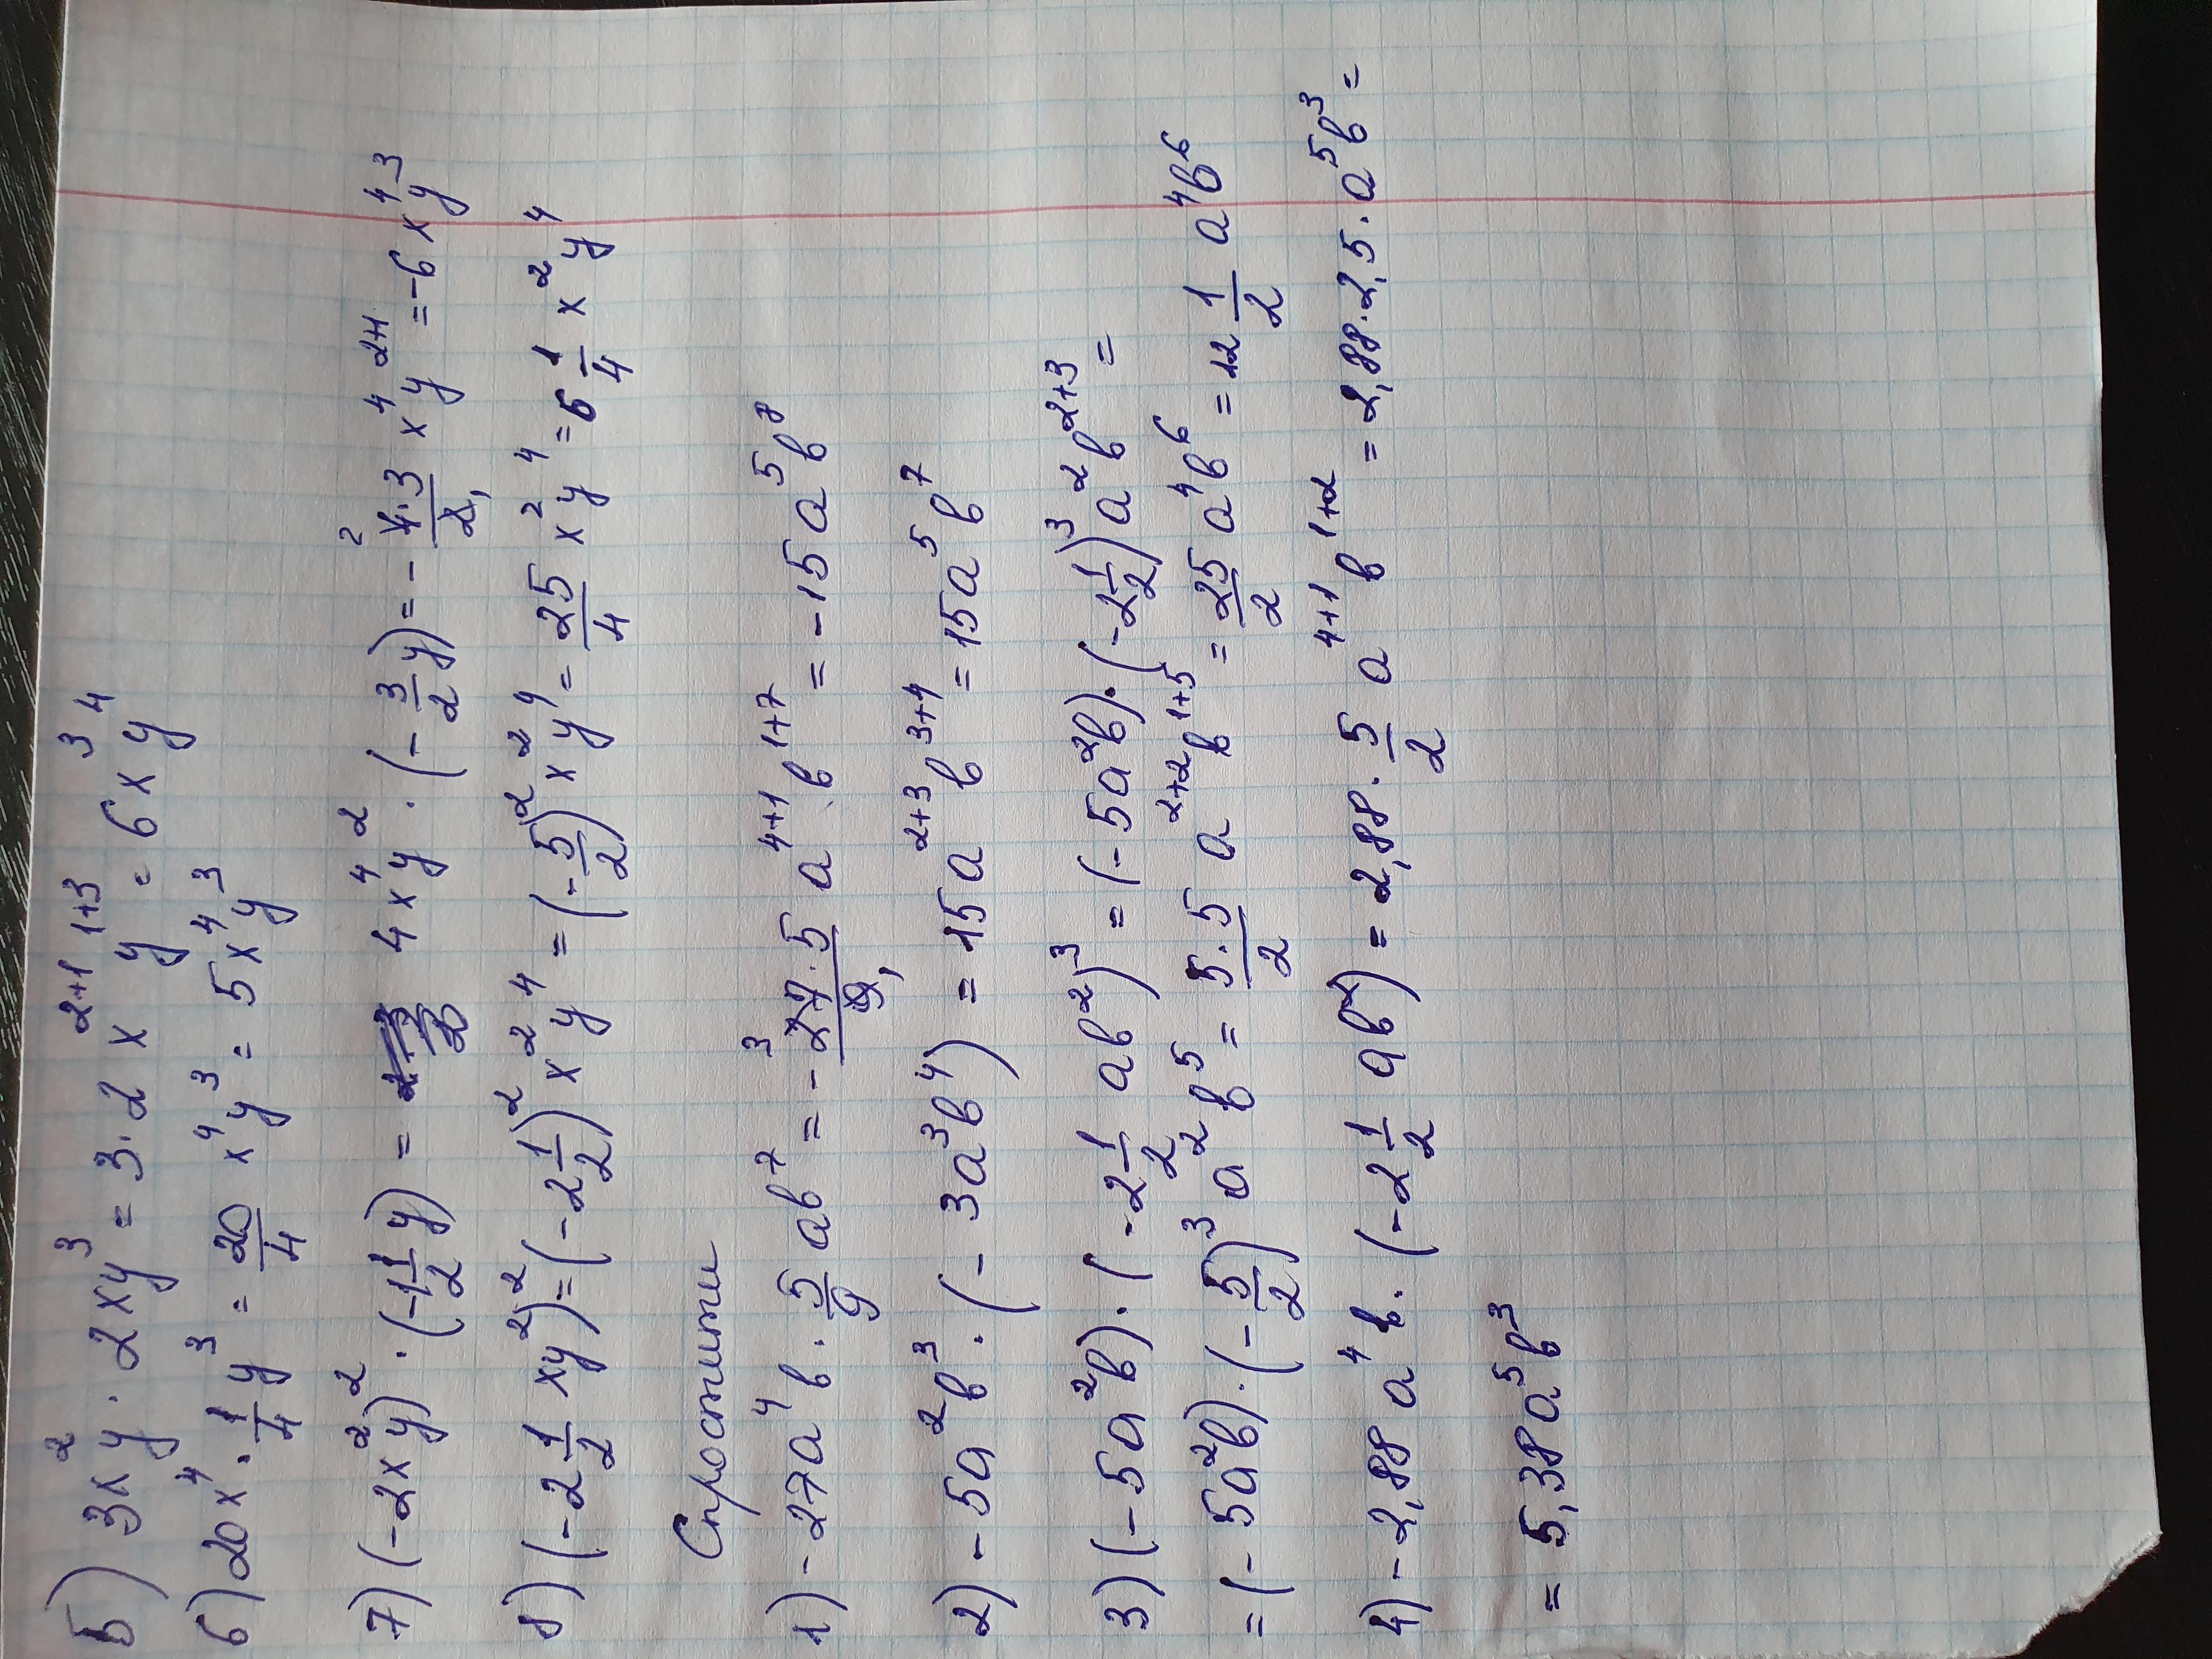 5) 3x²y · 2xy³ = 3 · 2 x²⁺¹y¹⁺³ = 6x³y⁴
6) 20x⁴ · 1/4 y³ = 20/4 x⁴y³ = 5x⁴y³
7) (-2x²y)² · (-1 1/2 y) = 4x⁴y² · (-3/2 y) = - 4·3/2 x⁴y²⁺¹ = -6x⁴y³
8) (-2 1/2 xy²)² = (-2 1/2)² x²y⁴ = (-5/2)² x²y⁴ = 25/4 x²y⁴ = 6 1/4 x²y⁴
Спростити
1) -27a⁴b · 5/9 ab⁷ = - 27·5/9 a⁴⁺¹b¹⁺⁷ = -15a⁵b⁸
2) -5a²b³ · (-3a³b⁴) = 15a²⁺³b³⁺⁴ = 15a⁵b⁷
3) (-5a²b) · (-2 1/2 ab²)³ = (-5a²b) · (-2 1/2)³ a²b²⁺³ =
= (-5a²b) · (-5/2)³ a²b⁵ = 5·5/2 a²⁺²b¹⁺⁵ = 25/2 a⁴b⁶ = 12 1/2 a⁴b⁶
4) -2,88a⁴b · (-2 1/2 ab²) = 2,88 · 5/2 a⁴⁺¹b¹⁺² = 2,88 · 2,5 · a⁵b³ =
= 5,38a⁵b³